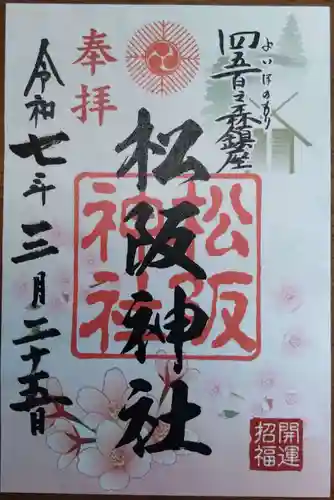 四五百々森鎮座
よいほのもり
奉拝
松阪神社
松阪
神社
令和七年三月二十五日
開運
招福